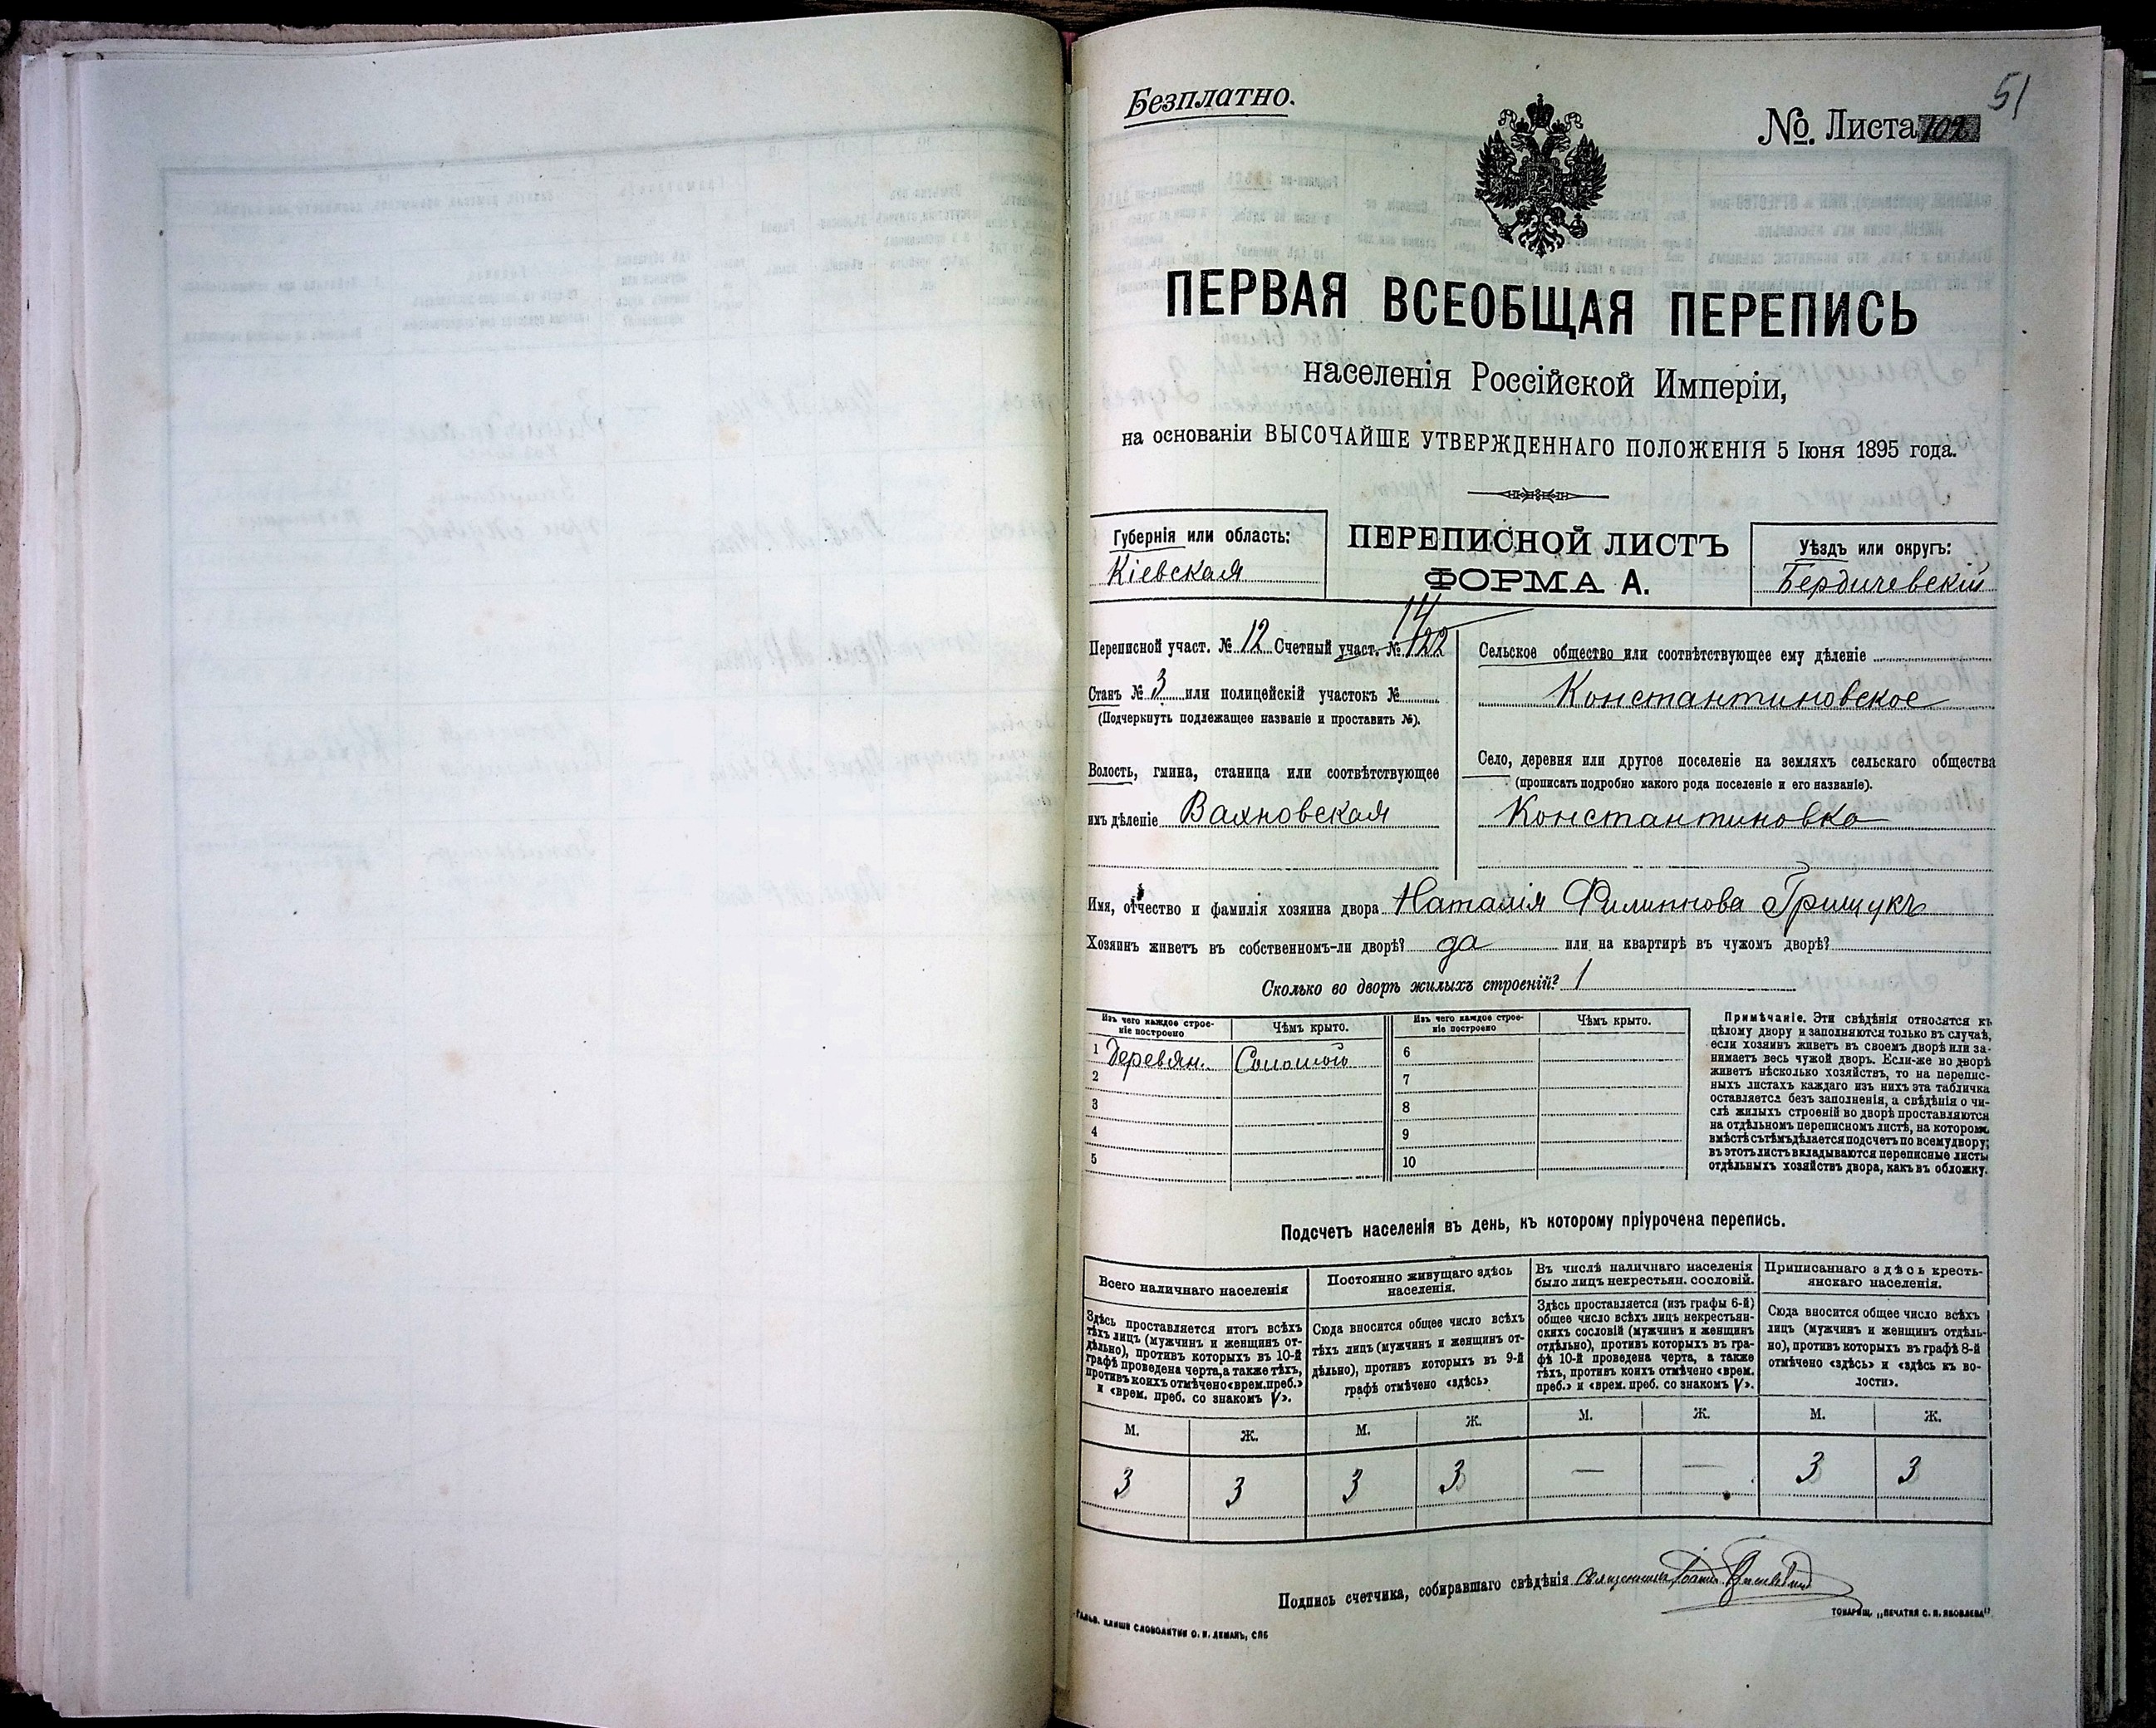 51
Безплатно.
№ Листа 102
ПЕРВАЯ ВСЕОБЩАЯ ПЕРЕПИСЬ
населенія Россійской Имперіи,
на основаніи ВЫСОЧАЙШЕ УТВЕРЖДЕННАГО ПОЛОЖЕНІЯ 5 Іюня 1895 года.
Губернія или область:
Кіевская
ПЕРЕПИСНОЙ ЛИСТЪ
ФОРМА А.
Уѣздъ или округъ:
Бердичевскій
14
Переписной участ. № 12 Счетный участ. № 122
Станъ № 3 или полицейскій участокъ №
(Подчеркнуть подлежащее названіе и проставить №).
Волость, гмина, станица или соотвѣтствующее
имъ дѣленіе Вахновская
Сельское общество или соотвѣтствующее ему дѣленіе
Константиновское
Село, деревня или другое поселеніе на земляхъ сельскаго общества
(прописать подробно какого рода поселеніе и его названіе).
Константиновка
Имя, отчество и фамилія хозяина двора Наталія Филиппова Грищукъ
Хозяинъ живетъ въ собственномъ-ли дворѣ? да или на квартирѣ въ чужомъ дворѣ?
Сколько во дворѣ жилыхъ строеній? 1
Изъ чего каждое строе-
ніе построено
Чѣмъ крыто.
Изъ чего каждое строе-
ніе построено
Чѣмъ крыто.
1 Деревян. Соломою
2
3
4
5
6
7
8
9
10
Примѣчаніе. Эти свѣдѣнія относятся къ
цѣлому двору и заполняются только въ случаѣ,
если хозяинъ живетъ въ своемъ дворѣ или за-
нимаетъ весь чужой дворъ. Если-же во дворѣ
живетъ нѣсколько хозяйствъ, то на перепис-
ныхъ листахъ каждаго изъ нихъ эта табличка
оставляется безъ заполненія, а свѣдѣнія о чи-
слѣ жилыхъ строеній во дворѣ проставляются
на отдѣльномъ переписномъ листѣ, на которомъ
вмѣстѣ съ тѣмъ дѣлается подсчетъ по всему двору;
въ этотъ листъ вкладываются переписные листы
отдѣльныхъ хозяйствъ двора, какъ въ обложку.
Подсчетъ населенія въ день, къ которому пріурочена перепись.
Всего наличнаго населенія
Здѣсь проставляется итогъ всѣхъ
тѣхъ лицъ (мужчинъ и женщинъ от-
дѣльно), противъ которыхъ въ 10-й
графѣ проведена черта, а также тѣхъ,
противъ коихъ отмѣчено «врем. преб.»
и «врем. преб. со знакомъ V».
Постоянно живущаго здѣсь
населенія.
Сюда вносится общее число всѣхъ
тѣхъ лицъ (мужчинъ и женщинъ от-
дѣльно), противъ которыхъ въ 9-й
графѣ отмѣчено «здѣсь»
Въ числѣ наличнаго населенія
было лицъ некрестьян. сословій.
Здѣсь проставляется (изъ графы 6-й)
общее число всѣхъ лицъ некрестьян-
скихъ сословій (мужчинъ и женщинъ
отдѣльно), противъ которыхъ въ гра-
фѣ 10-й проведена черта, а также
тѣхъ, противъ коихъ отмѣчено «врем.
преб.» и «врем. преб. со знакомъ V».
Приписаннаго здѣсь кресть-
янскаго населенія.
Сюда вносится общее число всѣхъ
лицъ (мужчинъ и женщинъ отдѣль-
но), противъ которыхъ въ графѣ 8-й
отмѣчено «здѣсь» и «здѣсь къ во-
лости».
М. Ж. М. Ж. М. Ж. М. Ж.
3 3 3 3 — — 3 3
Подпись счетчика, собиравшаго свѣдѣнія Священникъ Іоаннъ
ГАЛЬВ. КЛИШЕ СЛОВОЛИТНИ О. И. ЛЕМАНЪ, СПБ
ТОВАРИЩ. „ПЕЧАТНЯ С. П. ЯКОВЛЕВА"